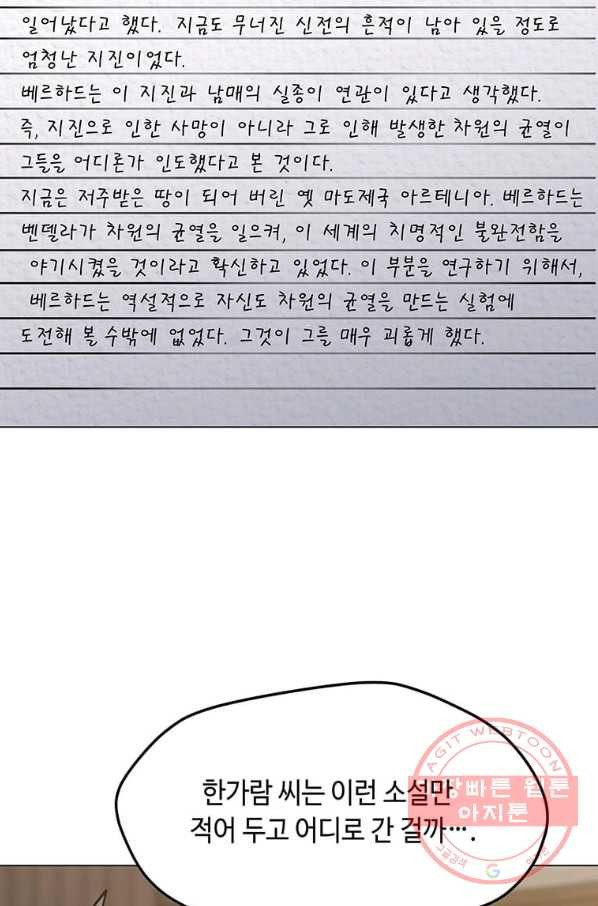 일어났다고 했다. 지금도 무너진 신전의 흔적이 남아 있을 정도로
엄청난 지진이었다.
베르하드는 이 지진과 남매의 실종이 연관이 있다고 생각했다.
즉, 지진으로 인한 사망이 아니라 그로 인해 발생한 차원의 균열이
그들을 어디론가 인도했다고 본 것이다.
지금은 저주받은 땅이 되어 버린 옛 마도제국 아르테니아. 베르하드는
벤델라가 차원의 균열을 일으켜, 이 세계의 치명적인 불완전함을
야기시켰을 것이라고 확신하고 있었다. 이 부분을 연구하기 위해서,
베르하드는 역설적으로 자신도 차원의 균열을 만드는 실험에
도전해 볼 수밖에 없었다. 그것이 그를 매우 괴롭게 했다.
한가람 씨는 이런 소설만
적어 두고 어디로 간 걸까….
AGIT WEBTOON
빠른 웹툰
아지툰
구글검색
G